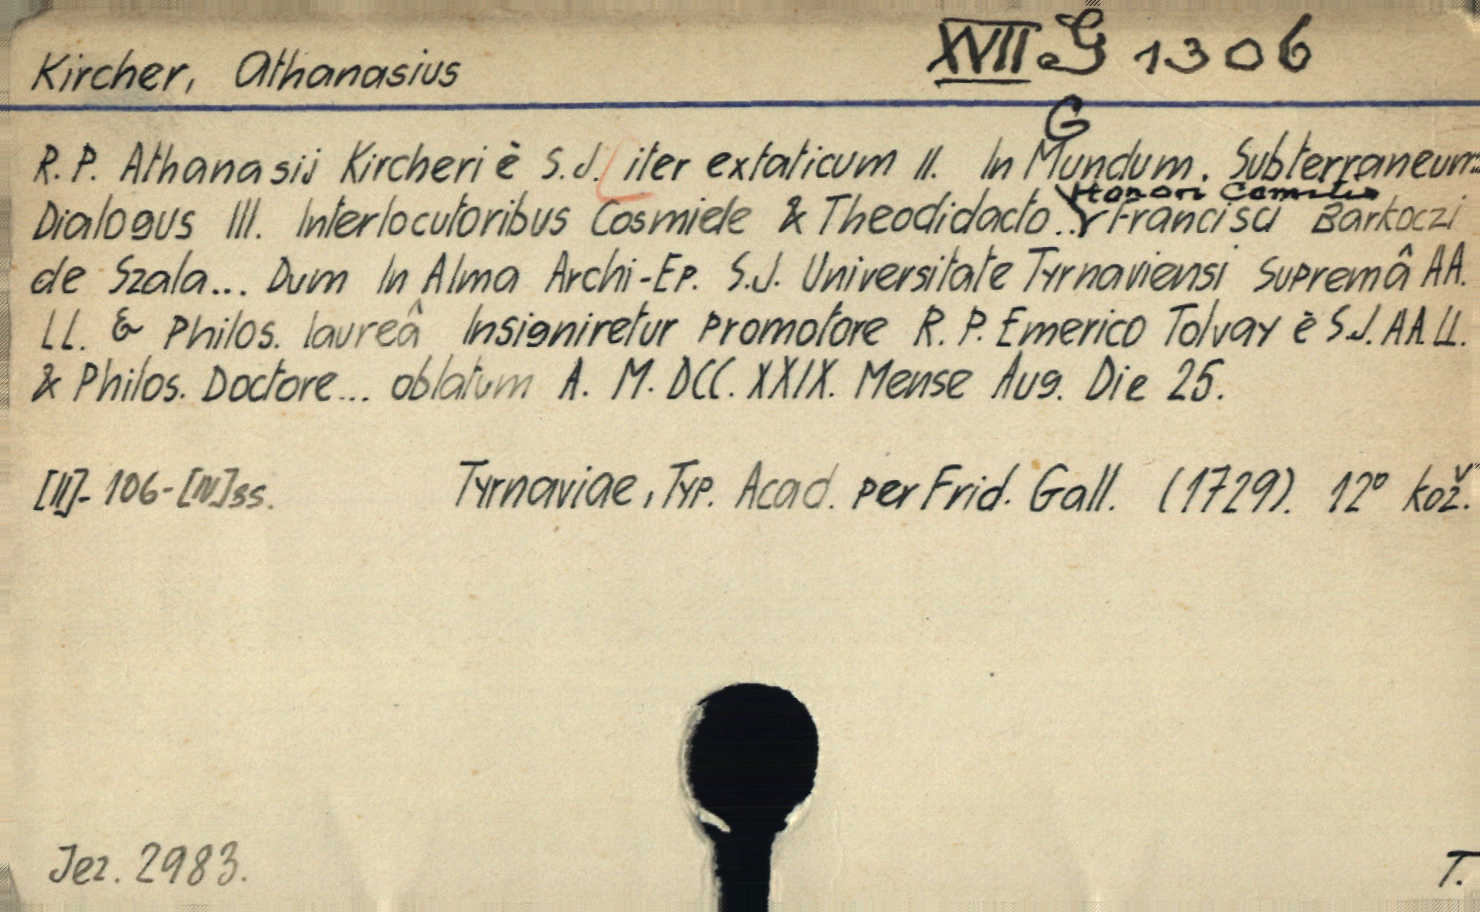 Kircher, Athanasius XVII G 1306
G
R. P. Athanasij Kircheri è S. J. iter extaticum II. In Mundum. Subterraneum...
Honori Comitis
Dialogus III. Interlocutoribus Cosmiele & Theodidacto... Francisci Barkoczi
de Szala... Dum In Alma Archi-Ep. S.J. Universitate Tyrnaviensi Supremâ AA.
LL. & Philos. laureâ Insigniretur promotore R. P. Emerico Tolvay è S.J. AA.LL.
& Philos. Doctore... oblatum A. M. DCC. XXIX. Mense Aug. Die 25.
[II]- 106-[IV]ss. Tyrnaviae, Typ. Acad. per Frid. Gall. (1729). 12° kož.
Jez. 2983. T.